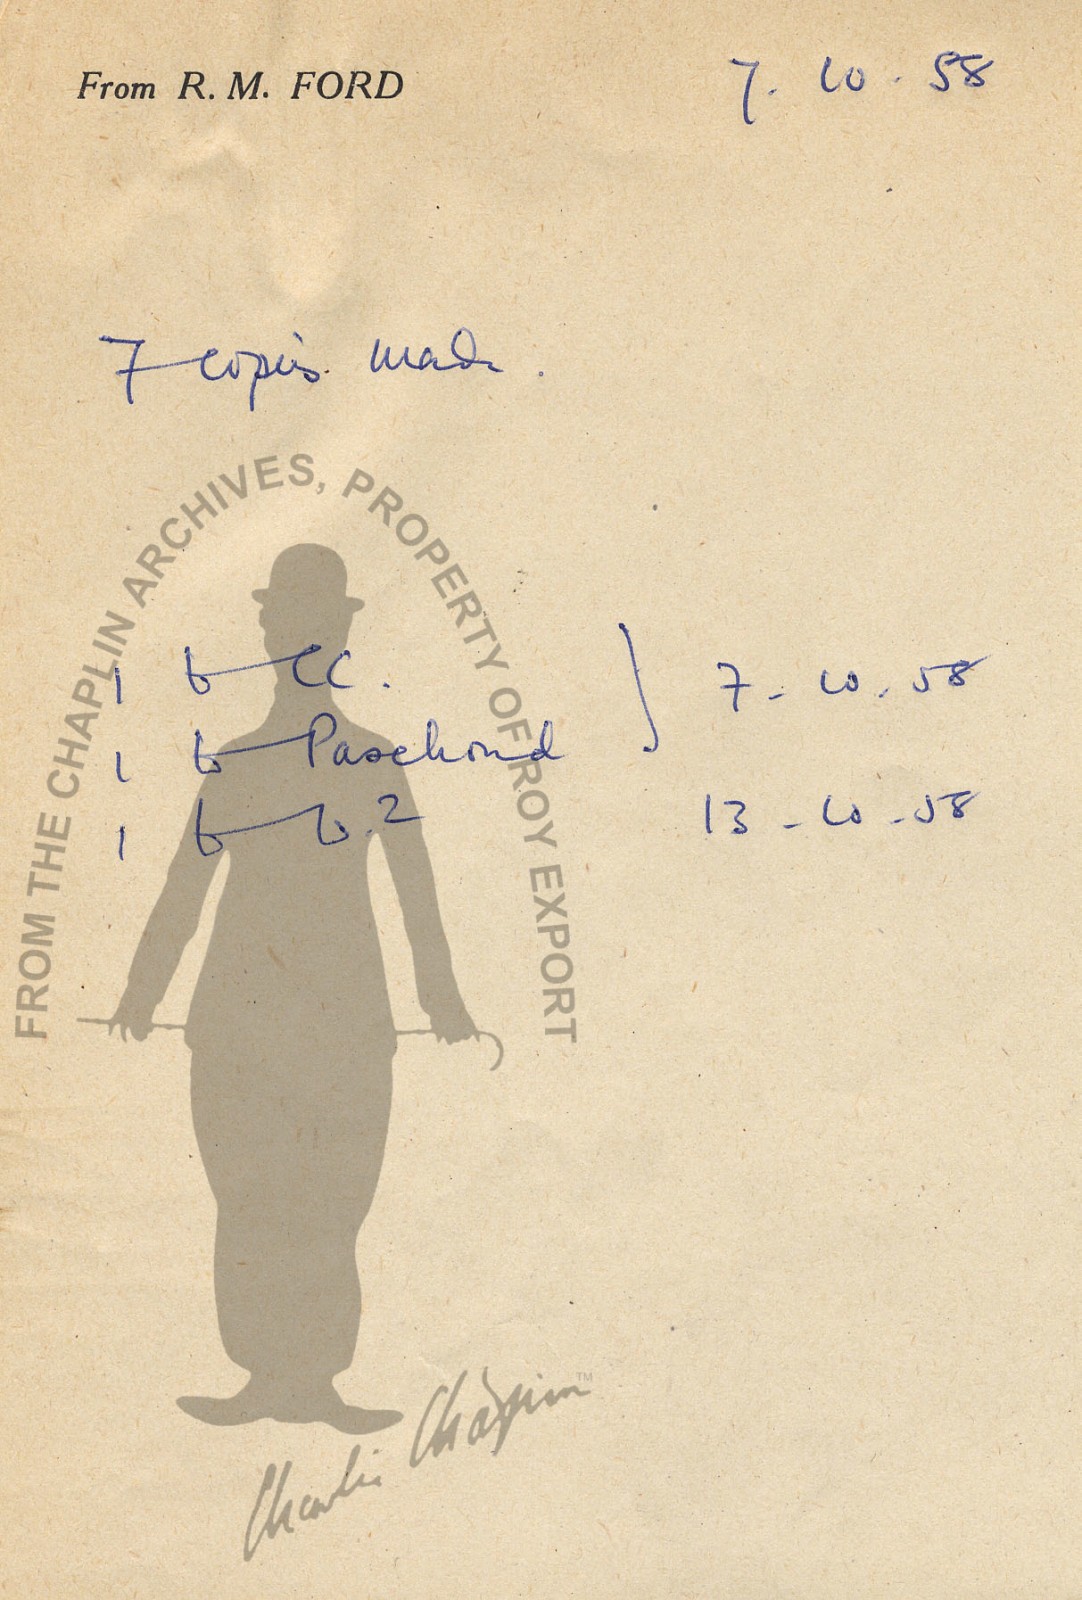 From R. M. FORD
7. 10. 58
7 copies made.
FROM THE CHAPLIN ARCHIVES, PROPERTY OF ROY EXPORT
1 to CC. } 7-10.58
1 to Paschoud
1 to 2 13-10-58
Charlie Chaplin™